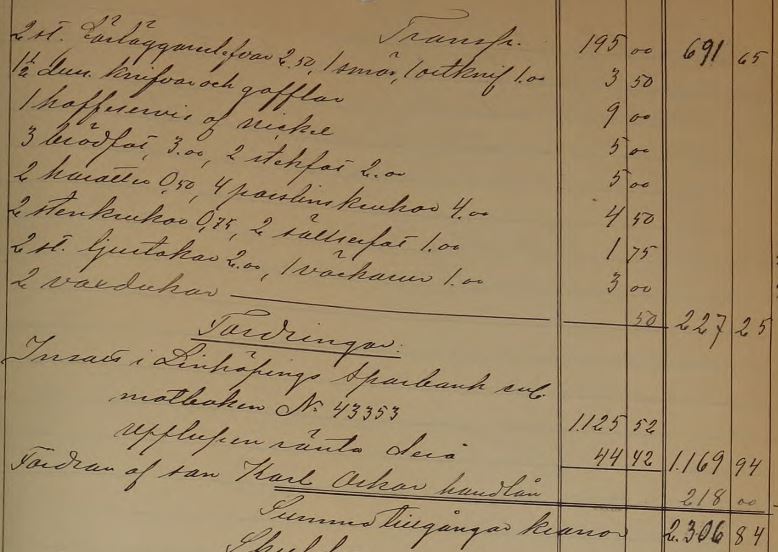 Transp. 195 00 691 65
2 st. förläggarebestick 2.50, 1 smör, 1 ostknif 1.00 3 50
1½ duss. knifvar och gafflar 9 00
1 kaffeservis af nickel 5 00
3 brödfat, 3.00, 2 stekfat 2.00 5 00
2 karotter 0,50, 4 porslinskrukor 4.00 4 50
2 stenkrukor 0,75, 2 fat 1.00 1 75
2 st. ljustakar 2.00, 1 väckarur 1.00 3 00
2 vaxdukar 50 227 25
Fordringar:
Insatt i Linköpings Sparbank sub.
motboken № 43353 1.125 52
upplupen ränta derå 44 42 1.169 94
Fordran af son Karl Oskar handlån 218 00
Summa tillgångar kronor 2.306 84